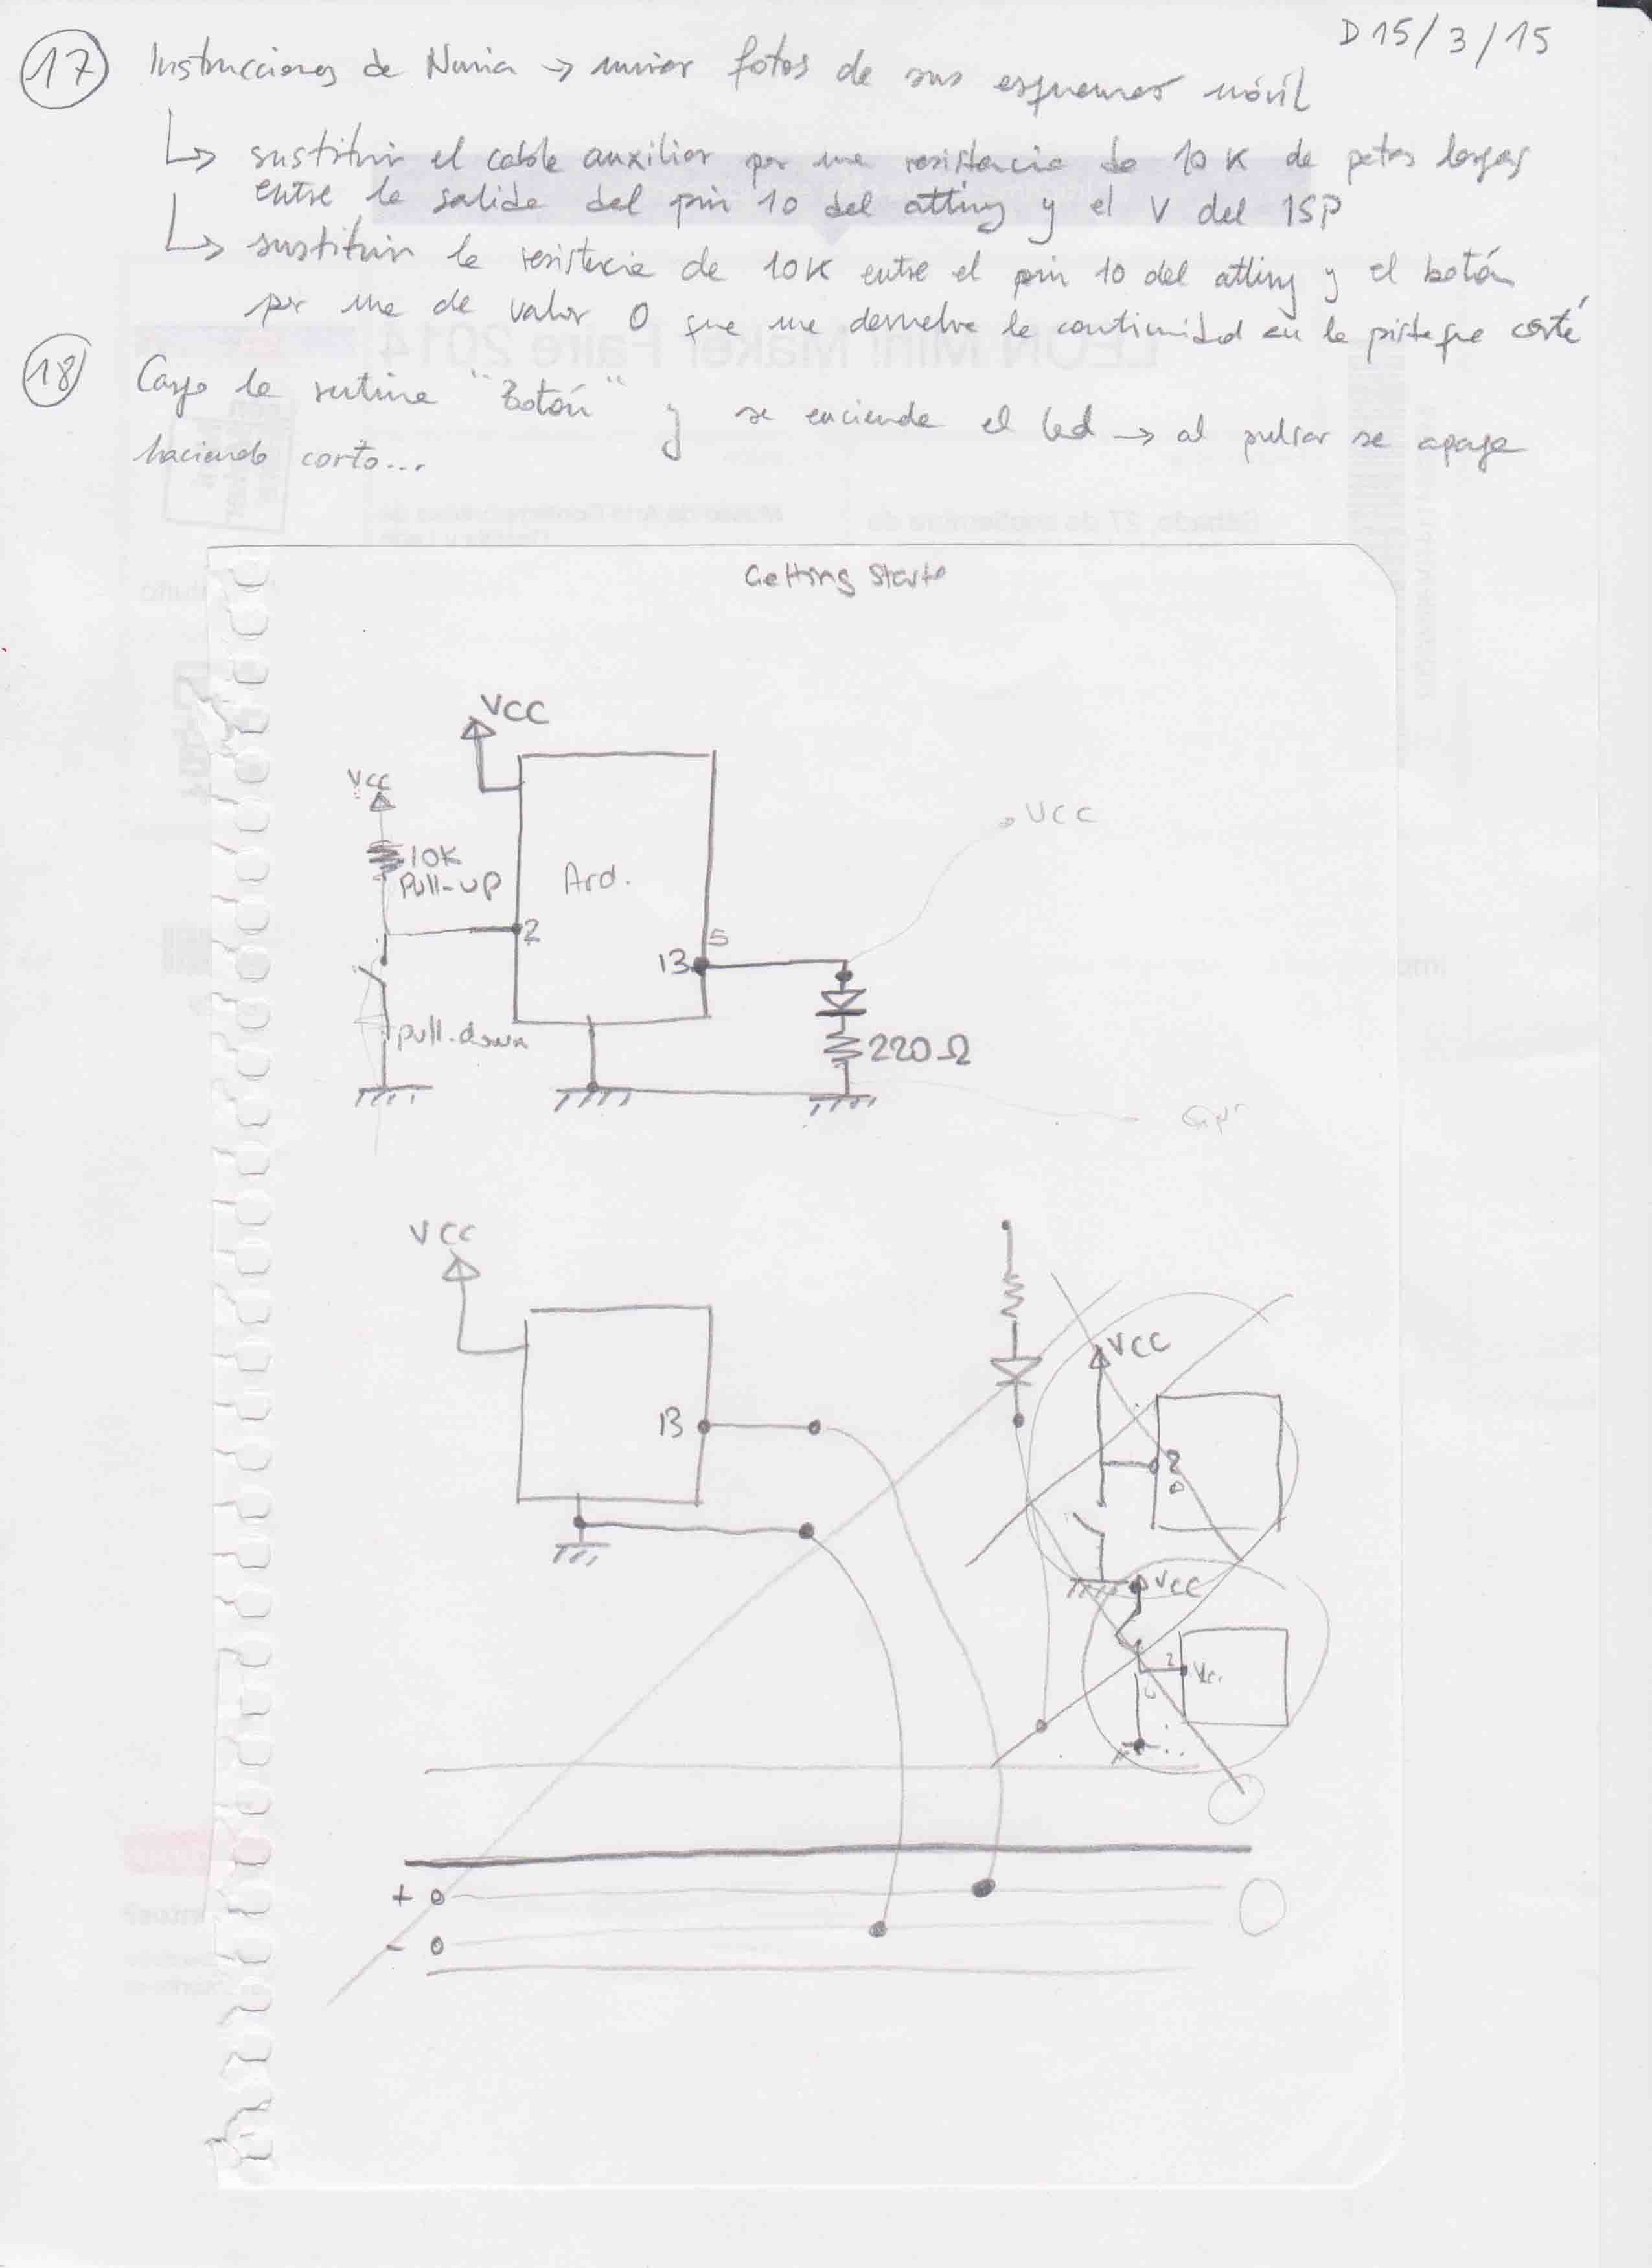 D 15/3/15
17 Instrucciones de Nuria → mirar fotos de sus esquemas móvil
↳ sustituir el cable auxiliar por una resistencia de 10 K de patas largas
entre la salida del pin 10 del attiny y el V del ISP
↳ sustituir la resistencia de 10K entre el pin 10 del attiny y el botón
por una de valor 0 que me devuelve la continuidad en la pista que corté
18 Cargo la rutina "Botón" y se enciende el led → al pulsar se apaga
haciendo corto...
LEÓN Mini Maker Faire 2014
Sábado, 27 de septiembre de
Museo de Arte Contemporáneo de
Castilla y León
Getting Starte
VCC
VCC
10K
Pull-up
Ard.
VCC
2
5
13
pull-down
220 Ω
VCC
VCC
13
2
VCC
2
+
-